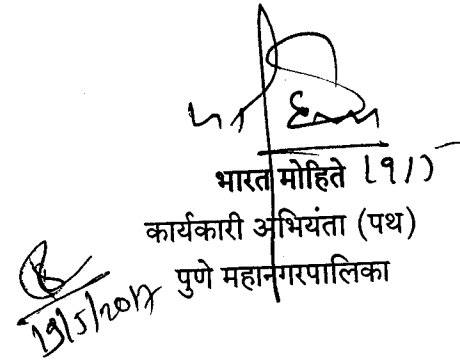 भारत मोहिते 19/5
कार्यकारी अभियंता (पथ)
पुणे महानगरपालिका
19/5/2017